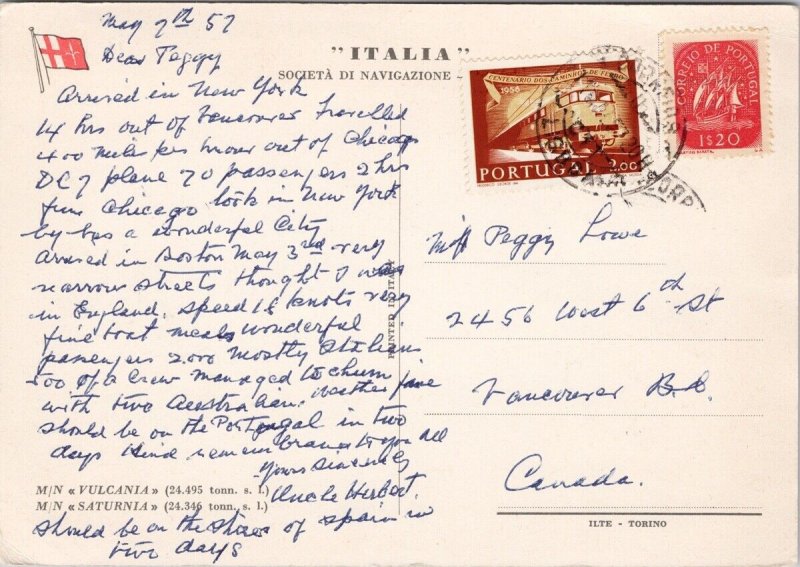 May 7th 57
Dear Peggy
Arrived in New York
14 hrs out of Vancouver Travelled
400 miles per hour out of Chicago
DC7 plane 70 passengers 2 hrs
from Chicago took in New York
by bus a wonderful City
Arrived in Boston May 3rd very
narrow streets thought I was
in England. Speed 18 knots very
fine boat meals wonderful
passengers 2.000 mostly Italians
500 of a crew managed to chum
with two Australian. Weather fine
should be on the Portugal in two
days Kind remembrance to you all
Yours Sincerely
Uncle Herbert.
should be on the shores of spain in
two days
"ITALIA"
SOCIETÀ DI NAVIGAZIONE -
M/N «VULCANIA» (24.495 tonn. s. l.)
M/N «SATURNIA» (24.346 tonn. s. l.)
PRINTED IN ITALY
CENTENARIO DOS CAMINHOS DE FERRO
1956
PORTUGAL 2.00
CORREIO DE PORTUGAL
1$20
Miss Peggy Lowe
2456 West 6th St
Vancouver B.C.
Canada.
ILTE - TORINO